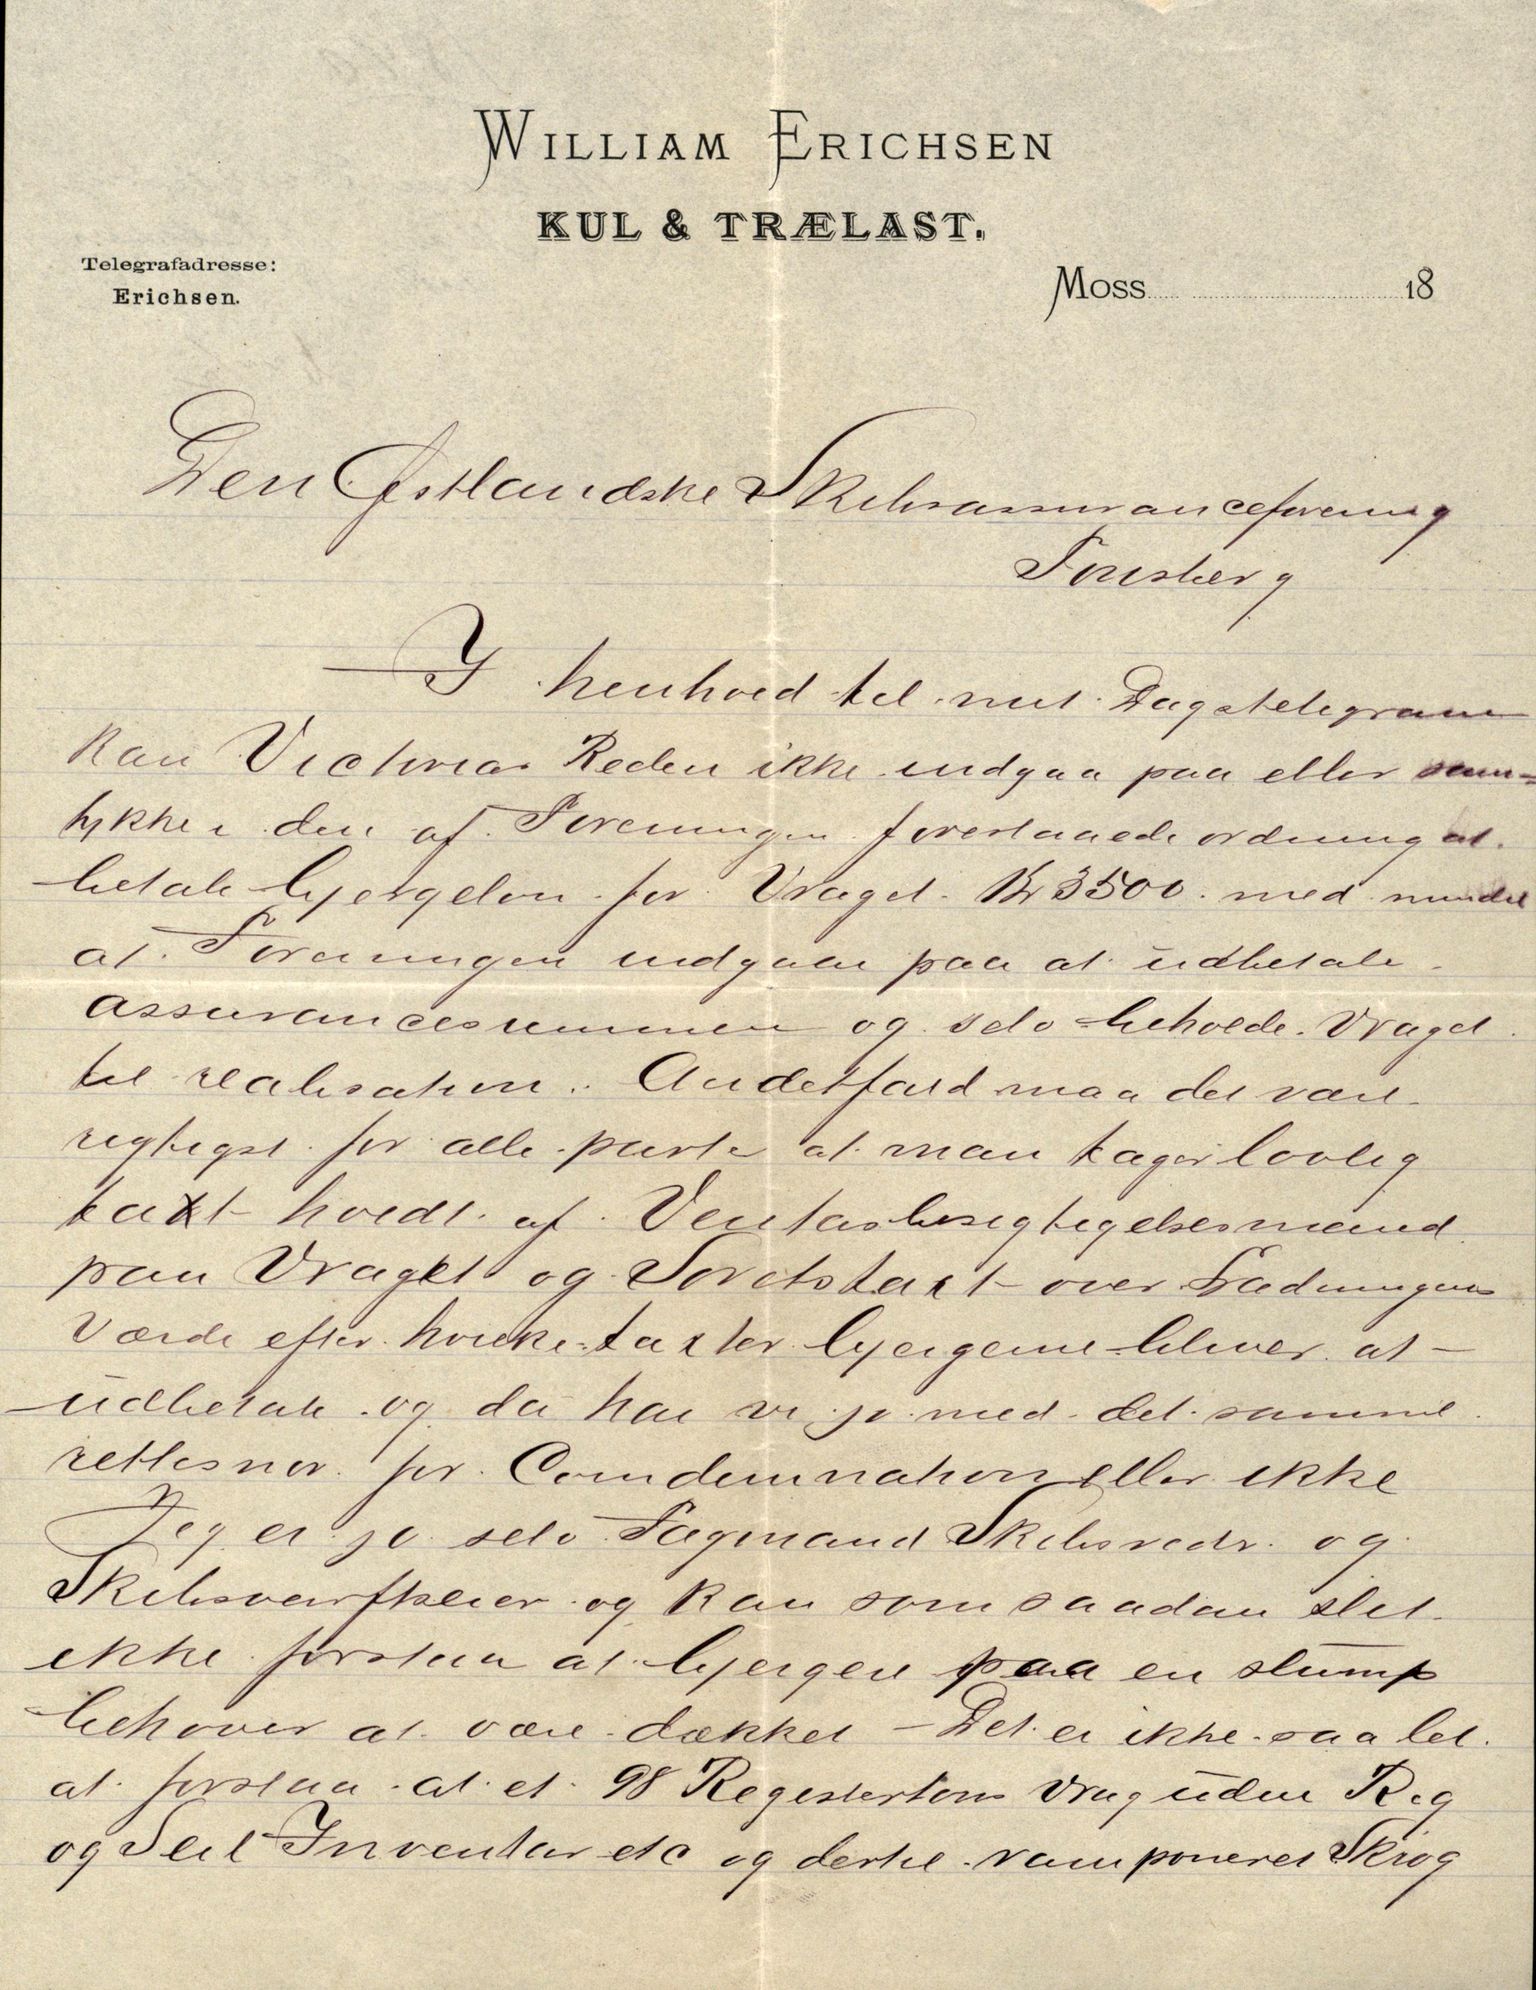 WILLIAM ERICHSEN
KUL & TRÆLAST.
Telegrafadresse:
Erichsen.
Moss 18
Den Østlandske Skibsassuranceforening
Tønsberg
I henhold til mit Dagstelegram
kan Victorias Rederi ikke indgaa paa eller sam-
tykke i den af Foreningen foreslaaede ordning at
betale bjergeløn for Vraget Kr 3500 med mindre
at Foreningen indgaar paa at udbetale
assurancesummen og selv beholde Vraget
til realisation. Andetfald maa det være
rigtigst for alle parter at man tager lovlig
taxt holdt af Veritas besigtigelsesmænd
paa Vraget og Sorets taxt over Ladningens
Værdi efter hvilke taxter bjergerne bliver at
udbetale og da har vi jo med det samme
rettesnor for Comdemnation eller ikke
Jeg er jo selv Fagmand Skibsreder og
Skibsverftseier og kan som saadan slet
ikke forstaa at bjergere paa en stump
behøver at være dækket – Det er ikke saa let
at forstaa at et 98 Registertons Vrag uden Rig
og Seil Inventar etc og dertil ramponeret Skrog